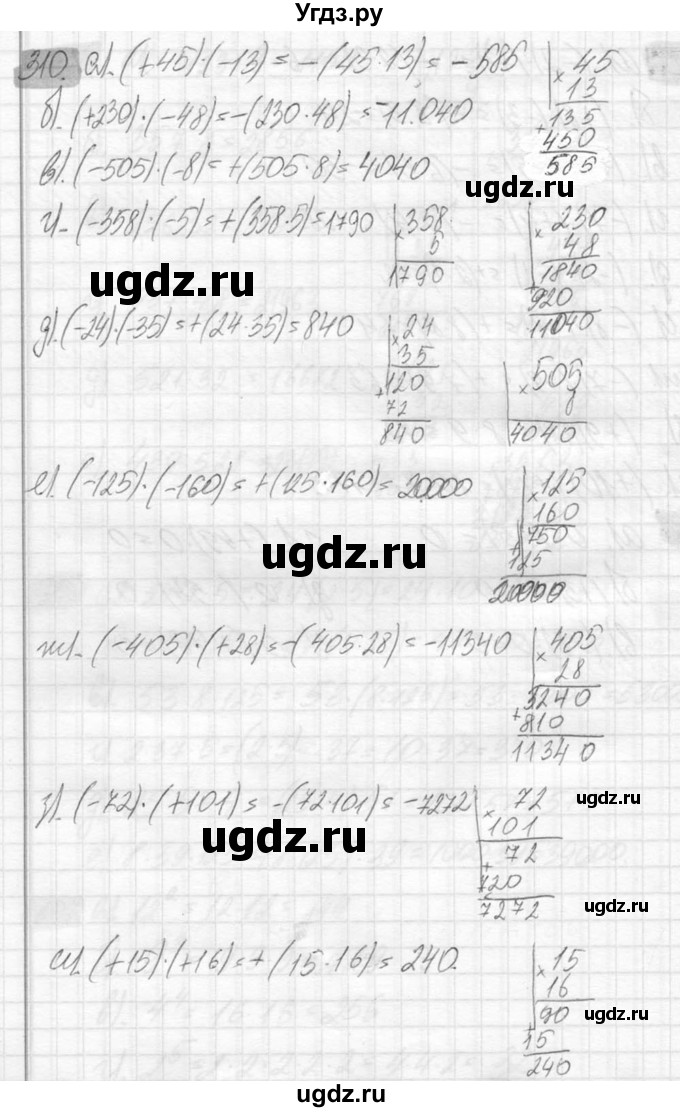 Угдз.ру
310. а). (+45)·(-13) = -(45·13) = -585
× 45
13
135
+
450
585
б). (+230)·(-48) = -(230·48) = -11.040
в). (-505)·(-8) = +(505·8) = 4040
ugdz.ru
г). (-358)·(-5) = +(358·5) = 1790
× 358
5
1790
× 230
48
+ 1840
920
11040
ugdz.ru
д). (-24)·(-35) = +(24·35) = 840
× 24
35
+ 120
72
840
× 505
8
4040
е). (-125)·(-160) = +(125·160) = 20000
× 125
160
+ 750
125
20000
ugdz.ru
ж). (-405)·(+28) = -(405·28) = -11340
× 405
28
3240
+ 810
11340
з). (-72)·(+101) = -(72·101) = -7272
× 72
101
+ 72
720
7272
ugdz.ru
ugdz.ru
ugdz.ru
и). (+15)·(+16) = +(15·16) = 240.
× 15
16
+ 90
15
240
ugdz.ru
ugdz.ru